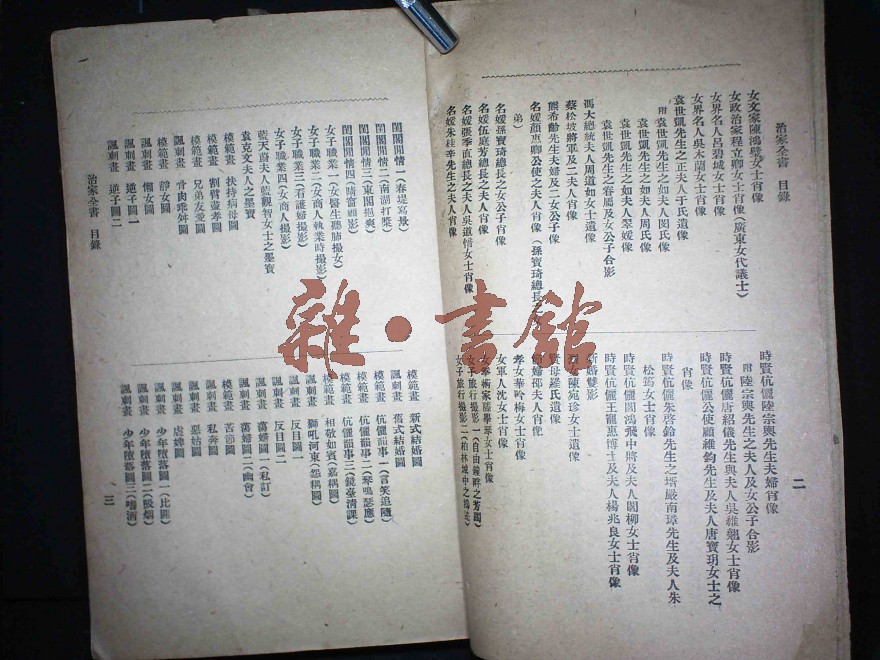 治家全書 目錄
女文家陳鴻璧女士肖像
女政治家程立卿女士肖像(廣東女代議士)
女界名人呂碧城女士肖像
女界名人吳木蘭女士肖像
袁世凱先生之正夫人于氏遺像
附 袁世凱先生之如夫人閔氏像
袁世凱先生之如夫人周氏像
袁世凱先生之如夫人翠媛像
袁世凱先生之眷屬及女公子合影
馮大總統夫人周道如女士遺像
蔡松坡將軍及二夫人肖像
熊希齡先生夫婦及二女公子像
名媛顏惠卿公使之夫人肖像(孫寶琦總長之
弟)
名媛孫寶琦總長之女公子肖像
名媛伍庭芳總長之夫人肖像
名媛張季直總長之夫人吳道愔女士肖像
名媛朱桂莘先生之夫人肖像
二
時賢伉儷陸宗輿先生夫婦肖像
附 陸宗輿先生之夫人及女公子合影
時賢伉儷唐紹儀先生與夫人吳維翹女士肖像
時賢伉儷公使顧維鈞先生及夫人唐寶玥女士之
肖像
時賢伉儷朱啓鈐先生之壻嚴南璋先生及夫人朱
松筠女士肖像
時賢伉儷閻鴻飛中將及夫人閻柳女士肖像
時賢伉儷王寵惠博士及夫人楊兆良女士肖像
新婚雙影
陳宛珍女士遺像
賢母羅氏遺像
節婦邵夫人肖像
孝女華吟梅女士肖像
女軍人沈女士肖像
女學術家 女士肖像
女子旅行撮影一(自由鐘畔之芳躅)
女子旅行撮影二(柏林城中之
閨閣閒情一(春堤寫景)
閨閣閒情二(南湖打槳)
閨閣閒情三(東閣挹爽)
閨閣閒情四(晴窗顧影)
女子職業一(女醫生聽肺撮女)
女子職業二(女商人執業時撮影)
女子職業三(看護婦撮影)
女子職業四(女商人撮影)
藍天蔚夫人藍觀智女士之墨寶
袁克文夫人之墨寶
模範畫 扶持病母圖
模範畫 割臂盡孝圖
模範畫 兄弟友愛圖
諷刺畫 骨肉乖舛圖
模範畫 靜女圖
諷刺畫 懶女圖
諷刺畫 逆子圖一
諷刺畫 逆子圖二
治家全書 目錄
模範畫 新式結婚圖
諷刺畫 舊式結婚圖
模範畫 伉儷韻事一(言笑追隨)
模範畫 伉儷韻事二(琴鳴瑟應)
模範畫 伉儷韻事三(鏡臺清課)
模範畫 相敬如賓(嘉耦圖)
諷刺畫 獅吼河東(怨耦圖)
諷刺畫 反目圖一
諷刺畫 反目圖二
諷刺畫 蕩婦圖一(私訂)
諷刺畫 蕩婦圖二(幽會)
模範畫 苦節圖
諷刺畫 私奔圖
諷刺畫 惡姑圖
諷刺畫 虐婢圖
諷刺畫 少年墮落圖一(比匪)
諷刺畫 少年墮落圖二(吸烟)
諷刺畫 少年墮落圖三(嗜酒)
三
雜·書館